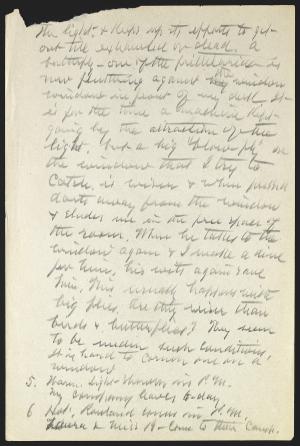 the light, & keeps up its efforts to get
out till exhausted or dead. A
butterfly - one of the fritillaries is
now fluttering against the window
windows in front of my desk. It
is for the time a machine kept
going by the attraction of the
light. But a big "blow fly" on
the window that I try to
catch, is wiser & when pushed
darts away from the window
& eludes me in the free space of
the room. When he takes to the
window again & I make a dive
for him, his wits again save
him. This usually happens with
big flies. Are they wiser than
birds & butterflies? They seem
to be under such conditions,
It is hard to corner one on a
window.
5. Warm. Light shower in P.M.
My company leaves to-day.
6 Hot, Rowland comes in P.M.
& Miss H- come to their Camp.